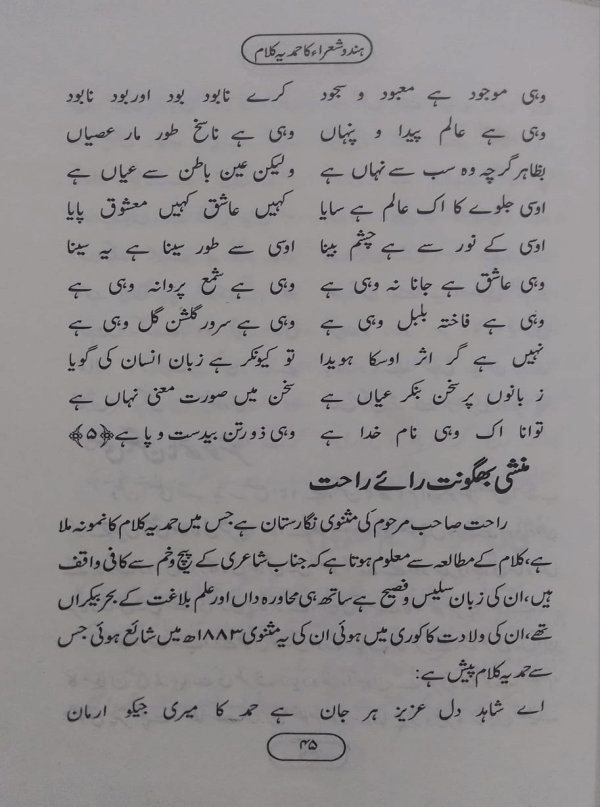 ہندو شعراء کا حمدیہ کلام
وہی موجود ہے معبود و سجود کرے نابود بود اور بود نابود
وہی ہے عالم پیدا و پنہاں وہی ہے ناسخ طور مار عصیاں
بظاہر گرچہ وہ سب سے نہاں ہے ولیکن عین باطن سے عیاں ہے
اوسی جلوے کا اک عالم ہے سایا کہیں عاشق کہیں معشوق پایا
اوسی کے نور سے ہے چشم بینا اوسی سے طور سینا ہے یہ سینا
وہی عاشق ہے جانا نہ وہی ہے وہی ہے شمع پروانہ وہی ہے
وہی ہے فاختہ بلبل وہی ہے وہی ہے سرور گلشن گل وہی ہے
نہیں ہے گر اثر اوسکا ہویدا تو کیونکر ہے زبان انسان کی گویا
ز بانوں پر سخن بنکر عیاں ہے سخن میں صورت معنی نہاں ہے
توانا اک وہی نام خدا ہے وہی ذو رتن بیدست و پا ہے ﴿۵﴾
منشی بھگونت رائے راحت
راحت صاحب مرحوم کی مثنوی نگارستان ہے جس میں حمدیہ کلام کا نمونہ ملا
ہے، کلام کے مطالعہ سے معلوم ہوتا ہے کہ جناب شاعری کے پیچ و خم سے کافی واقف
ہیں، ان کی زبان سلیس و فصیح ہے ساتھ ہی محاورہ داں اور علم بلاغت کے بحر بیکراں
تھے، ان کی ولادت کاکوری میں ہوئی ان کی یہ مثنوی ۱۸۸۳ھ میں شائع ہوئی جس
سے حمدیہ کلام پیش ہے:
اے شاہد دل عزیز ہر جان ہے حمد کا میری جیکو ارمان
۴۵